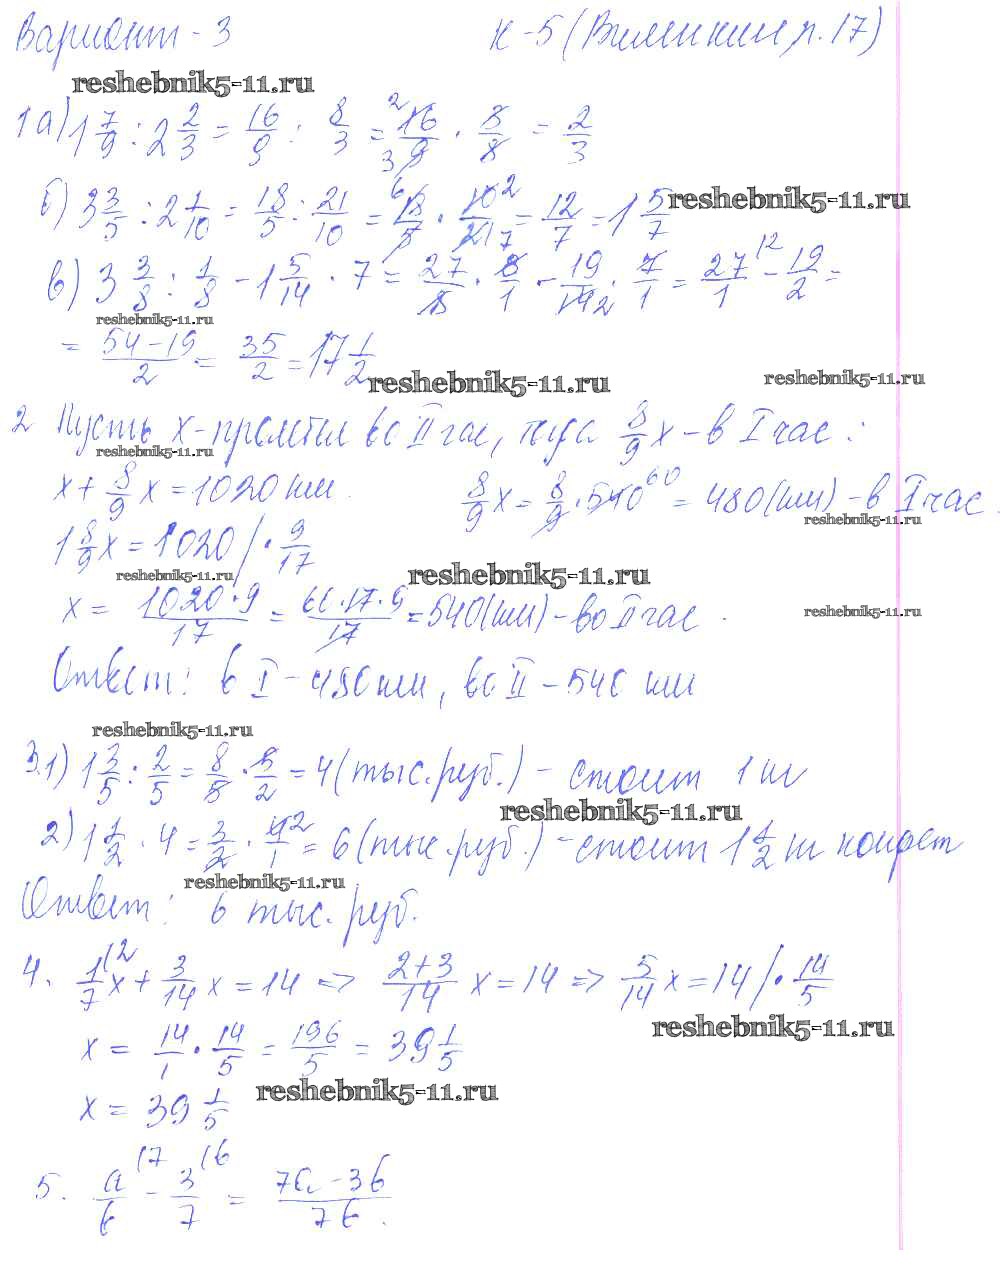 Вариант - 3 К-5 (Виленкин п.17)
reshebnik5-11.ru
1 а) 1 7/9 : 2 2/3 = 16/9 : 8/3 = 16/9 · 3/8 = 2/3
б) 3 3/5 : 2 1/10 = 18/5 : 21/10 = 18/5 · 10/21 = 12/7 = 1 5/7
reshebnik5-11.ru
в) 3 3/8 : 1/8 - 1 5/14 · 7 = 27/8 · 8/1 - 19/14 · 7/1 = 27/1 - 19/2 =
reshebnik5-11.ru
= 54-19/2 = 35/2 = 17 1/2
reshebnik5-11.ru
reshebnik5-11.ru
2 Пусть x - пролетел во II час, тогда 8/9 x - в I час:
reshebnik5-11.ru
x + 8/9 x = 1020 км. 8/9 x = 8/9 · 540 = 480 (км) - в I час.
reshebnik5-11.ru
1 8/9 x = 1020 | · 9/17
reshebnik5-11.ru
reshebnik5-11.ru
x = 1020·9/17 = 60·17·9/17 = 540 (км) - во II час.
reshebnik5-11.ru
Ответ: в I - 480 км, во II - 540 км
reshebnik5-11.ru
3. 1) 1 3/5 : 2/5 = 8/5 · 5/2 = 4 (тыс. руб.) - стоит 1 кг
reshebnik5-11.ru
2) 1 1/2 · 4 = 3/2 · 4/1 = 6 (тыс. руб.) - стоит 1 1/2 кг конфет
reshebnik5-11.ru
Ответ: 6 тыс. руб.
4. 1/7 x + 3/14 x = 14 => 2+3/14 x = 14 => 5/14 x = 14 | · 14/5
reshebnik5-11.ru
x = 14/1 · 14/5 = 196/5 = 39 1/5
reshebnik5-11.ru
x = 39 1/5
5. a/b - 3/7 = 7a - 3b/7b.